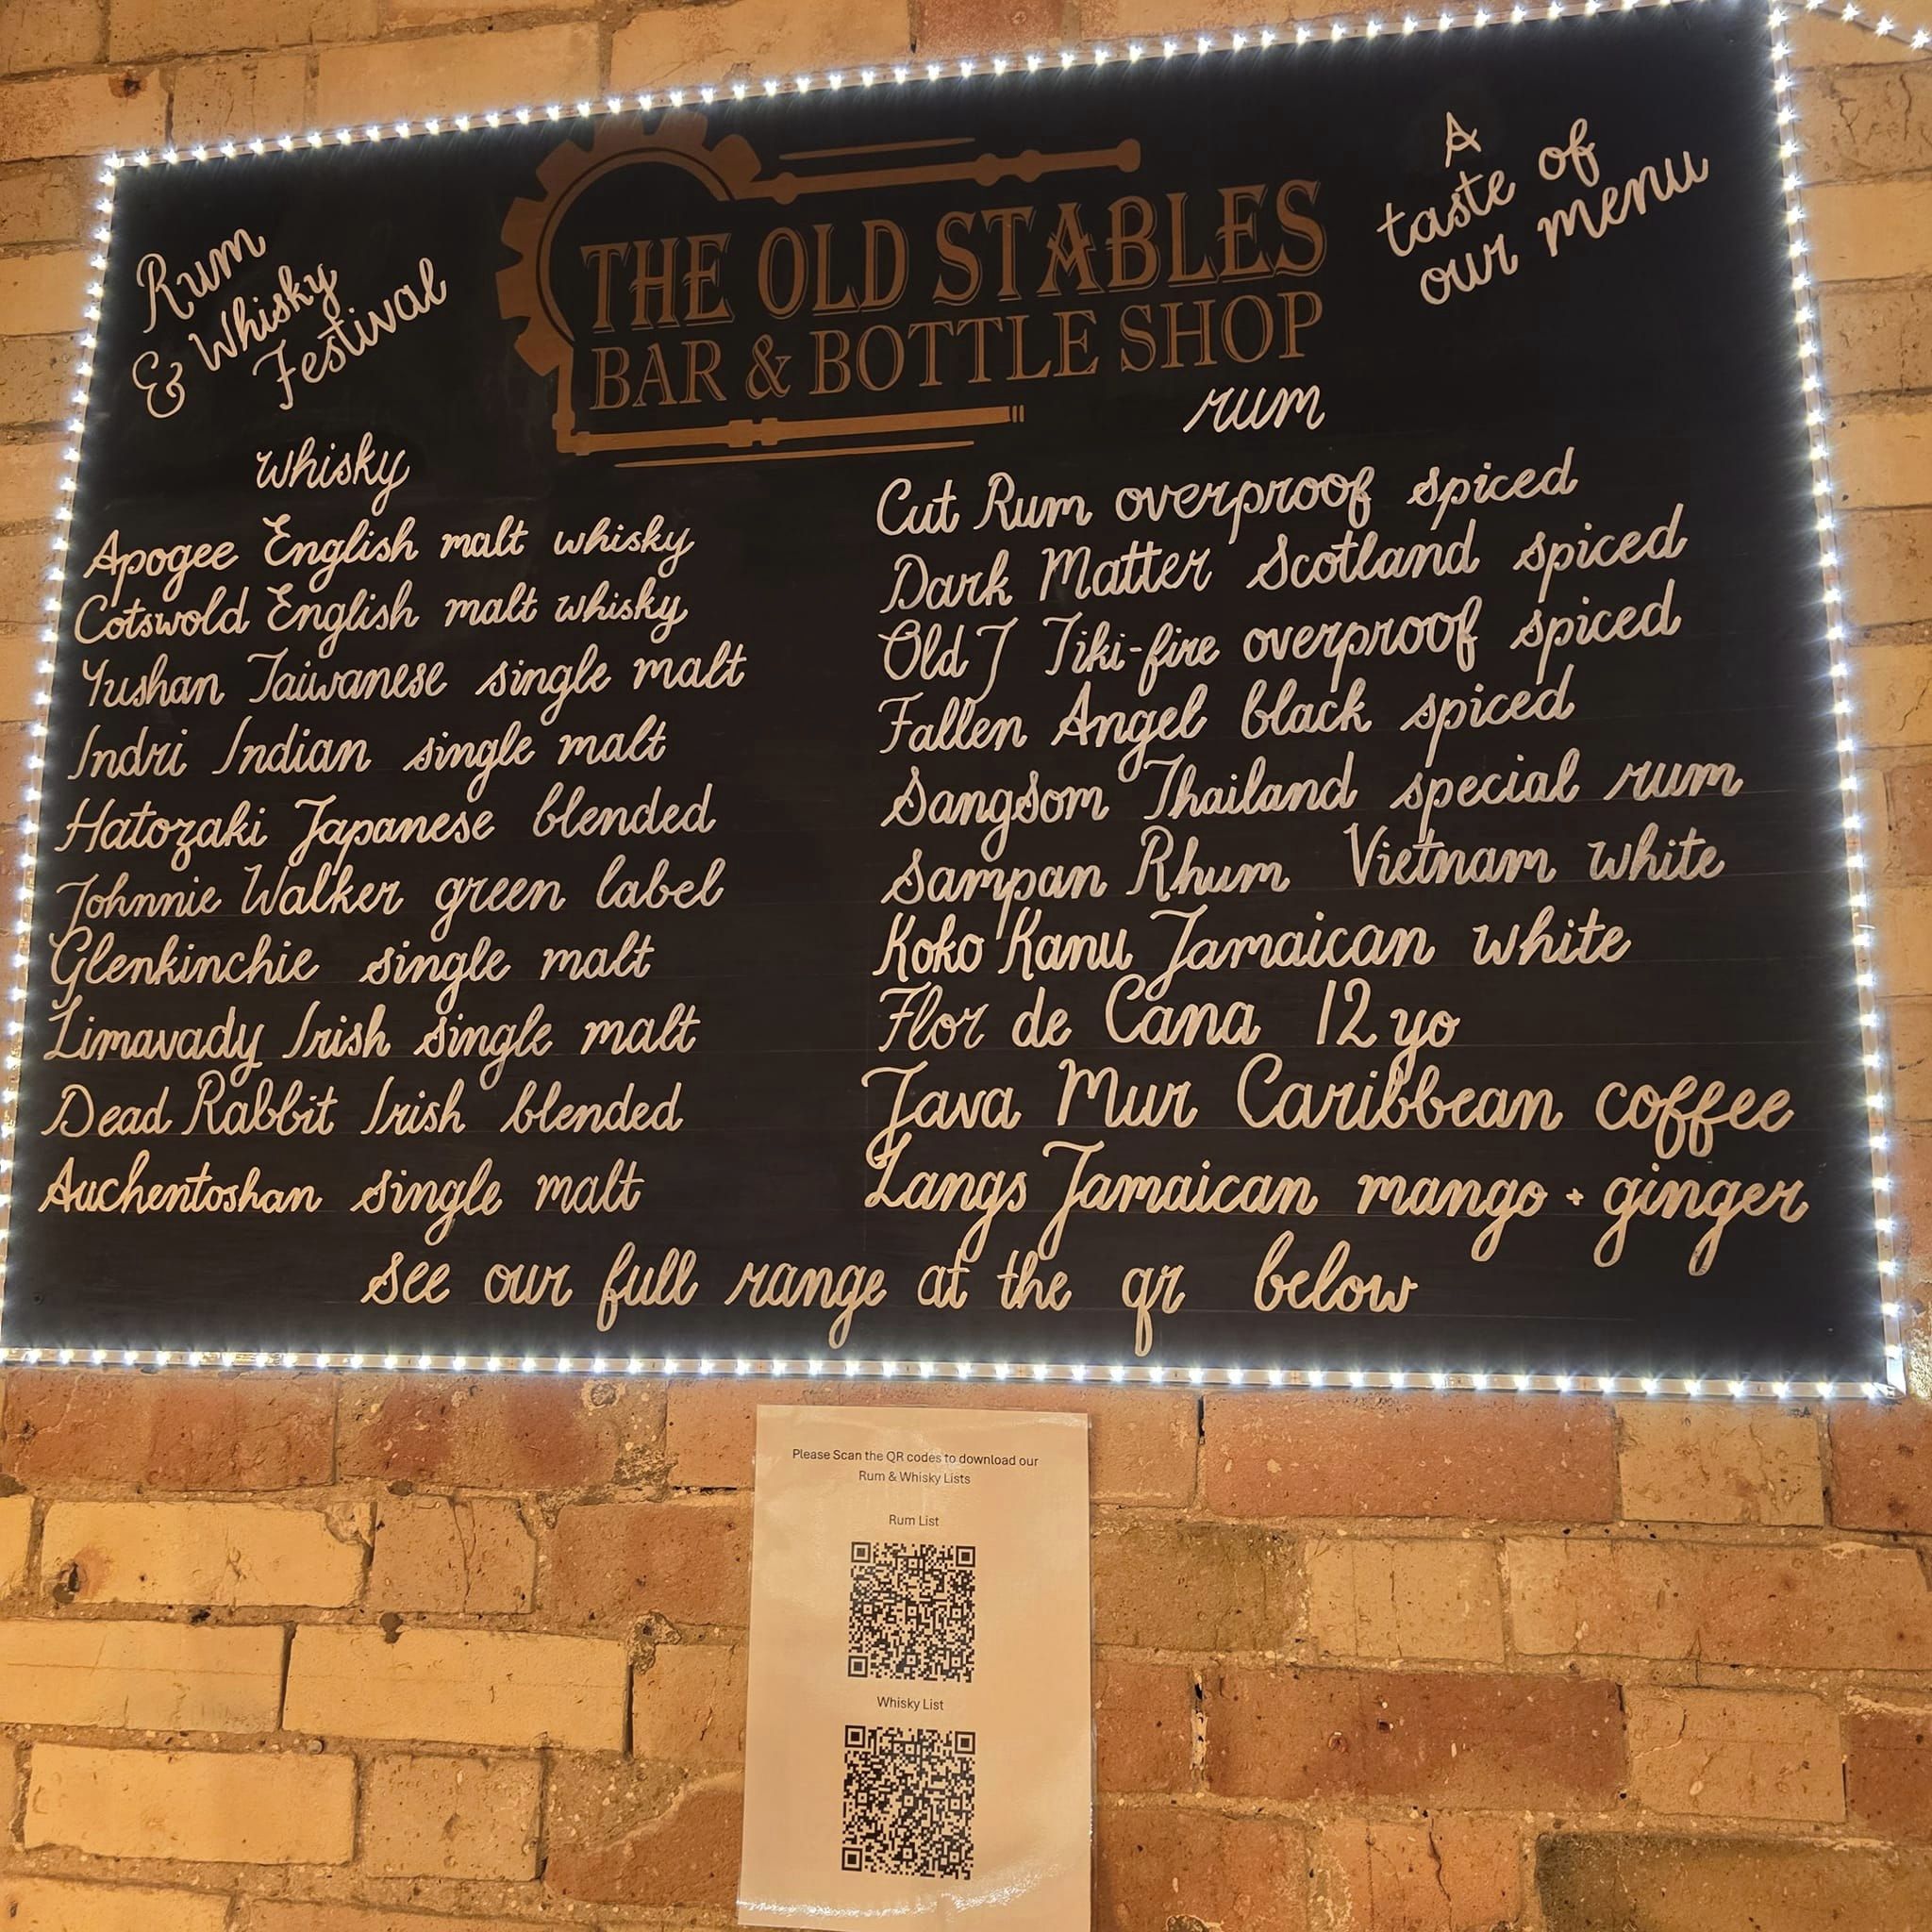 Rum
& Whisky
Festival
THE OLD STABLES
BAR & BOTTLE SHOP
A
taste of
our menu
whisky
Apogee English malt whisky
Cotswold English malt whisky
Yushan Taiwanese single malt
Indri Indian single malt
Hatozaki Japanese blended
Johnnie Walker green label
Glenkinchie single malt
Limavady Irish single malt
Dead Rabbit Irish blended
Auchentoshan single malt
rum
Cut Rum overproof spiced
Dark Matter Scotland spiced
Old J Tiki-fire overproof spiced
Fallen Angel black spiced
SangSom Thailand special rum
Sampan Rhum Vietnam white
Koko Kanu Jamaican white
Flor de Cana 12 yo
Java Mur Caribbean coffee
Langs Jamaican mango + ginger
see our full range at the qr below
Please Scan the QR codes to download our
Rum & Whisky Lists
Rum List
Whisky List